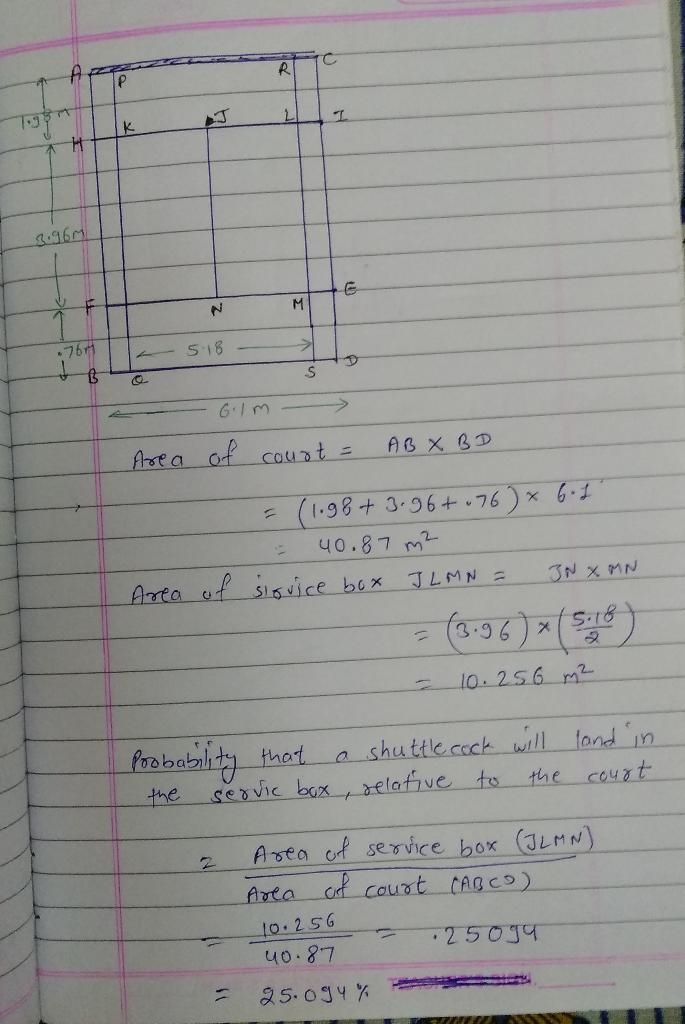 A P R C
1.98m
K J L I
H
3.96m
F N M E
.76m 5.18
B Q S D
6.1m
Area of court = AB X BD
= (1.98 + 3.96 + .76) x 6.1
= 40.87 m²
Area of sirvice box JLMN = JN X MN
= (3.96) x (5.18/2)
= 10.256 m²
Probability that a shuttlecock will land in
the servic box, relative to the court
= Area of service box (JLMN)
Area of court (ABCD)
= 10.256 / 40.87 = .25094
= 25.094 %